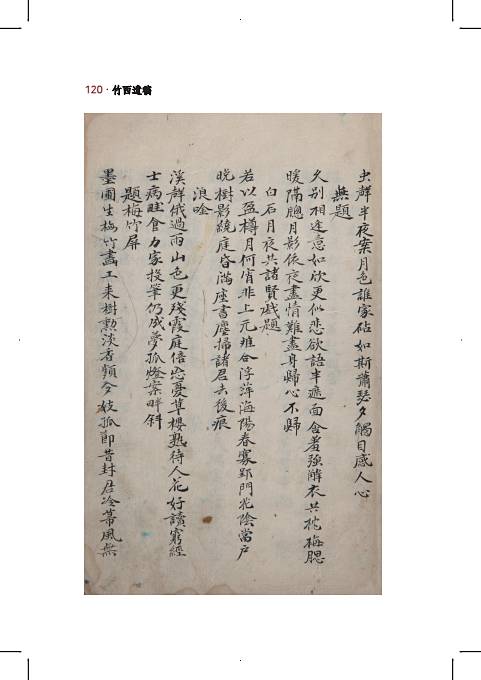 120 · 竹西遺稿
虫聲半夜案月色誰家砧如斯蕭瑟夕觸目感人心
無題
久別相逢意如欣更似悲欲語半遮面含羞強解衣共枕梅腮
暖隔牕月影依夜盡情難盡身歸心不歸
白石月夜共諸賢戱題
若以盈樽月何宵非上元难合浮萍海陽春寡郢門花陰當戶
晩樹影繞庭昏滿座書塵掃諸君去後痕
浪唫
溪聲俄過雨山色更殘霞庭倍恋憂草櫻熟待人花好讀窮經
士病旺食力家投筆仍成夢孤燈案畔斜
題梅竹屏
墨圃生梅竹畵工来樹勲淡香頻令妓孤節昔封君冷蒂風無